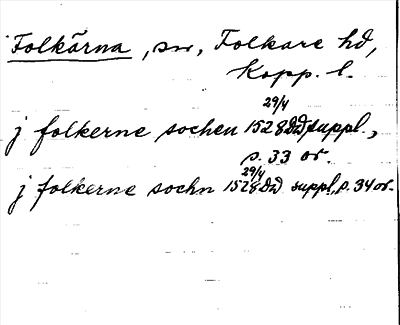 Folkärna, sn, Folkare hd,
Kopp. l.
29/4
j folkerne sochen 1528 DD suppl.,
p. 33 or.
29/4
j folkerne sochn 1528 DD suppl., p. 34 or.